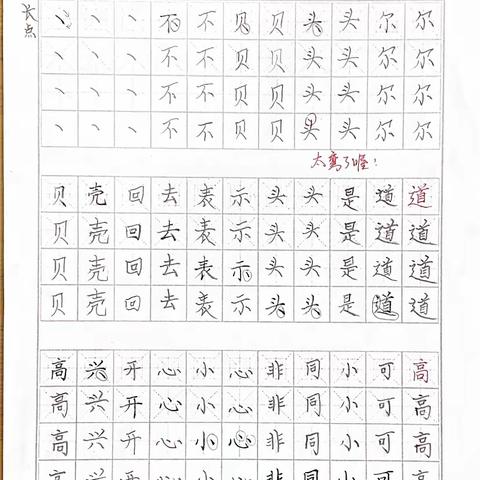 长点
丶 丶 丶 不 不 贝 贝 头 头 尔 尔
丶 丶 丶 不 不 贝 贝 头 头 尔 尔
丶 丶 丶 不 不 贝 贝 头 头 尔 尔
丶 丶 丶 不 不 贝 贝 头 头 尔 尔
太弯了喔!
贝 壳 回 去 表 示 头 头 是 道 道
贝 壳 回 去 表 示 头 头 是 道 道
贝 壳 回 去 表 示 头 头 是 道 道
贝 壳 回 去 表 示 头 头 是 道 道
高 兴 开 心 小 心 非 同 小 可 高
高 兴 开 心 小 心 非 同 小 可 高
高 兴 开 心 小 心 非 同 小 可 高
高 兴 开 心 小 心 非 同 小 可 高